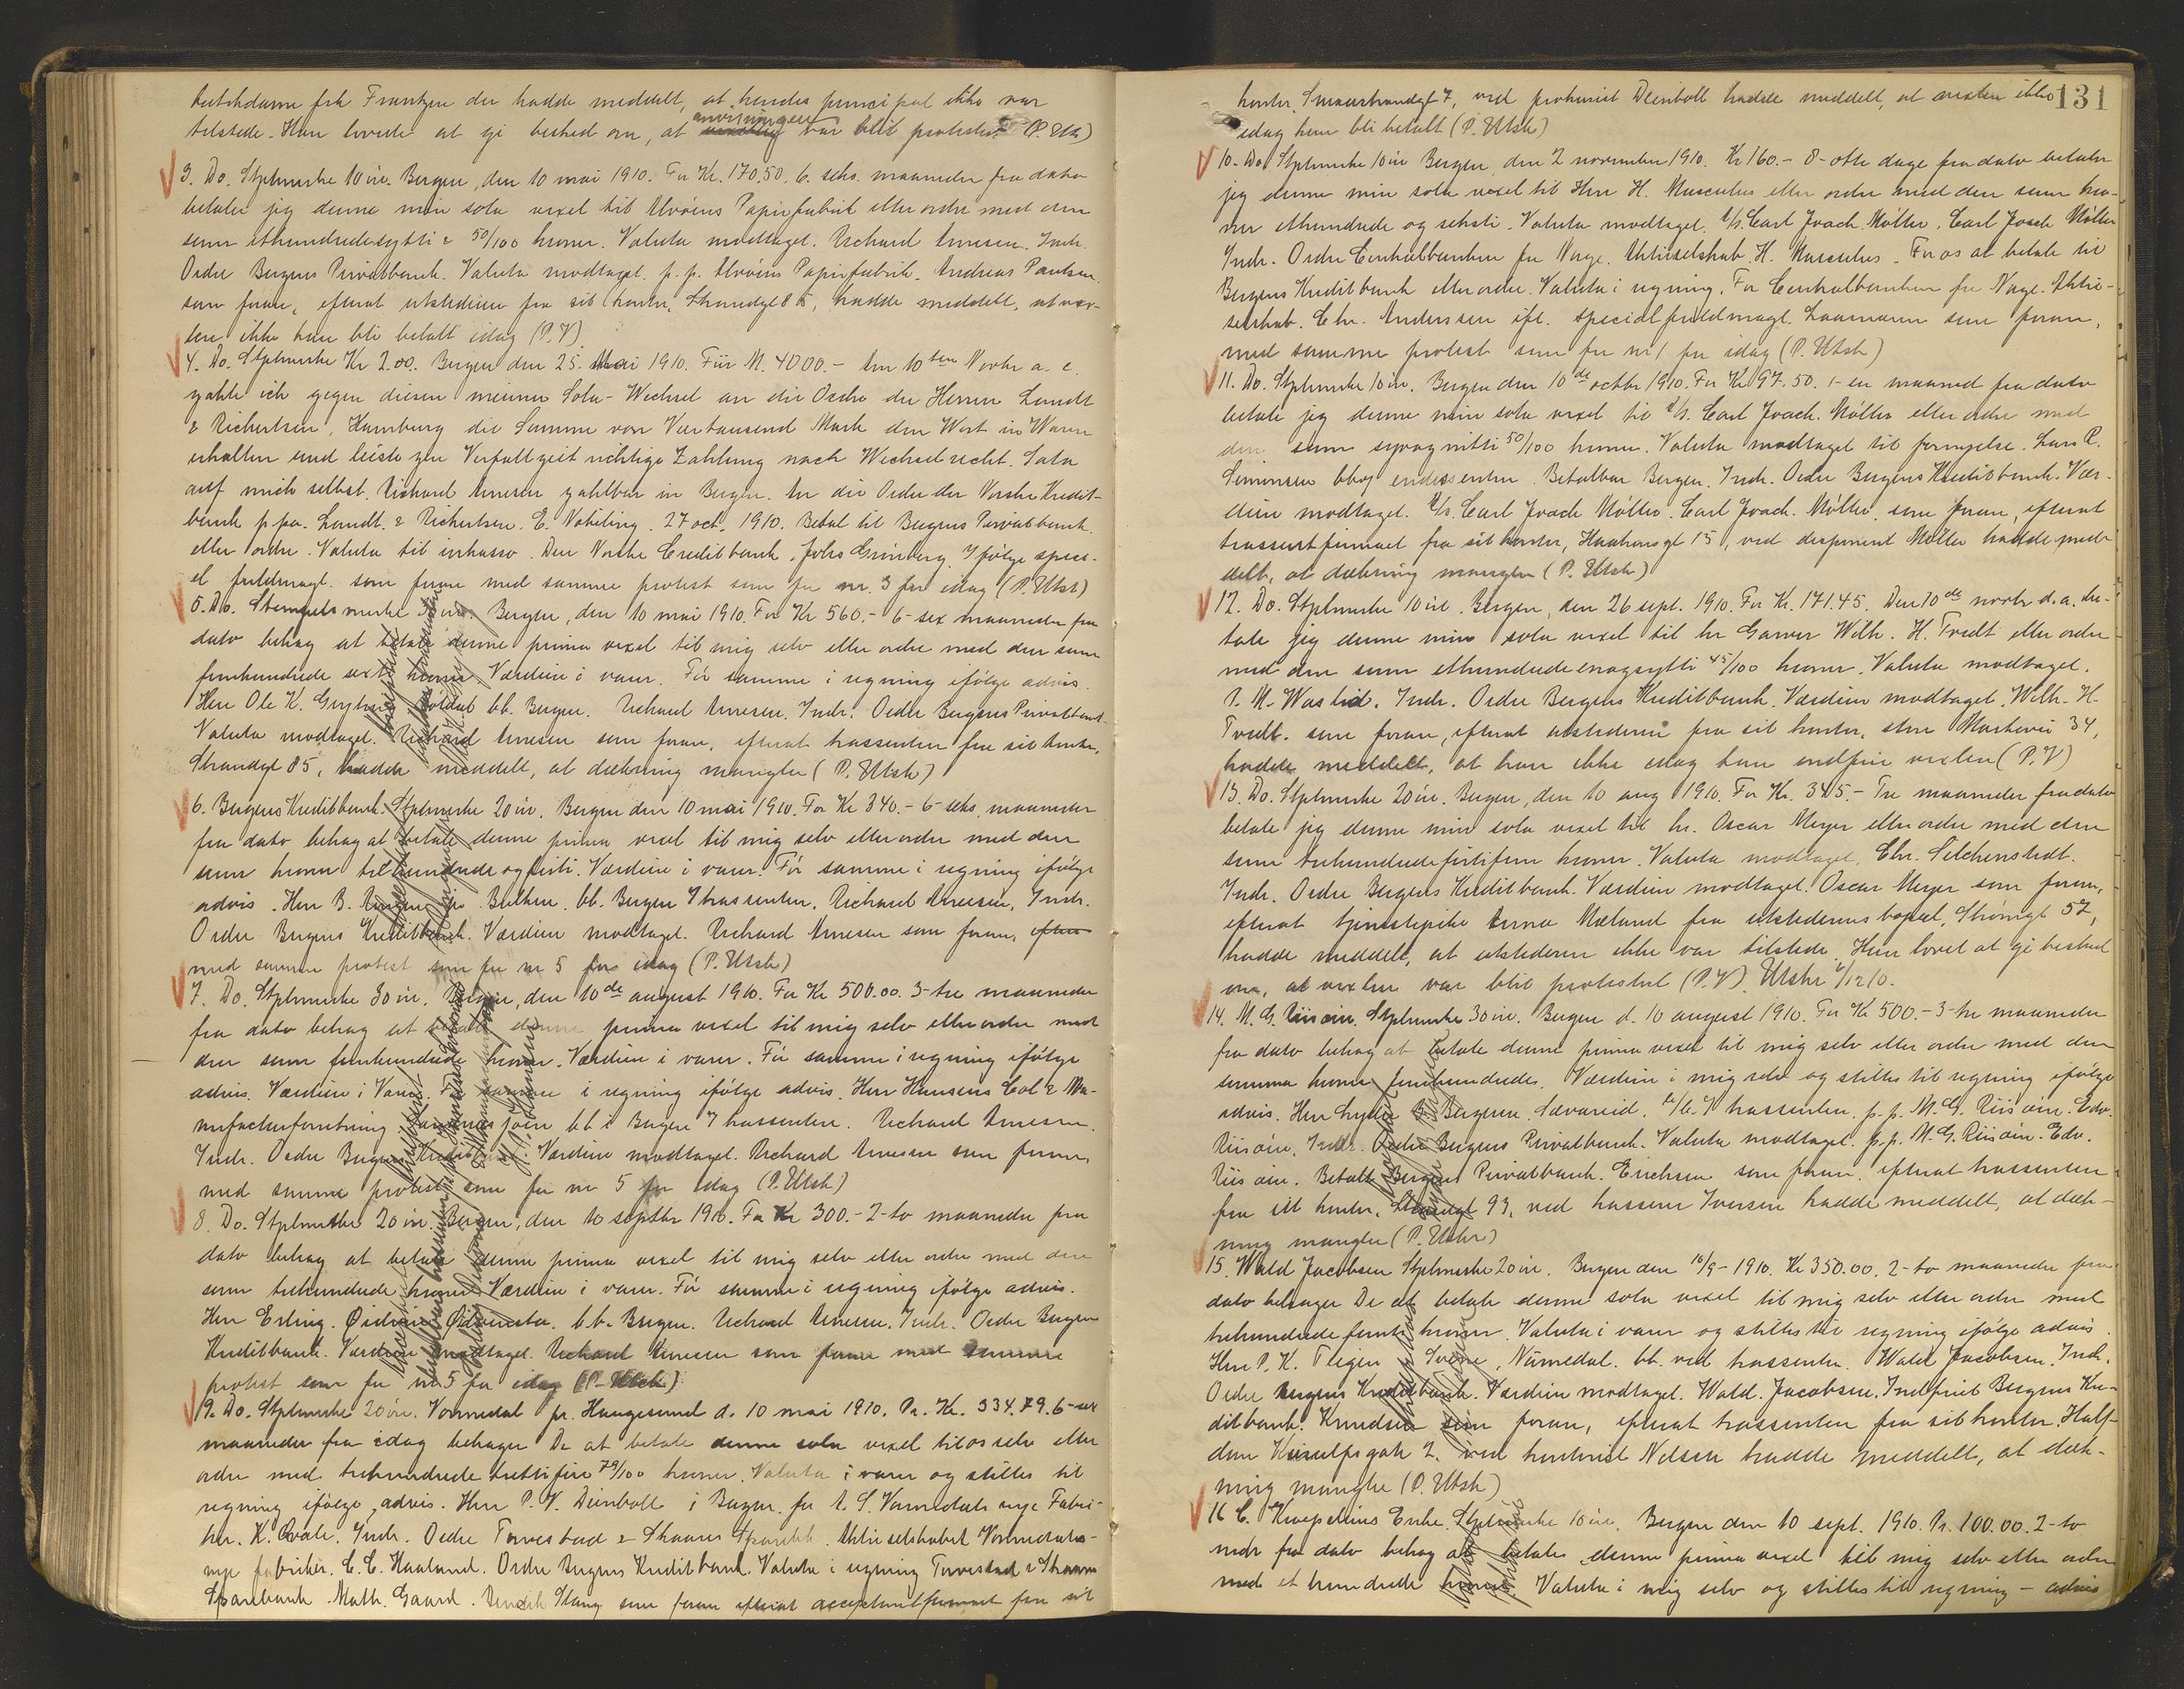 frk Frantzen der hadde meddelt, at hendes principal ikke var
anvisningen
tilstede. Hun lovede at gi besked om, at var blit protestert (P. Utst)
3. Do. Stplmerke 10 øre. Bergen, den 10 mai 1910. For Kr. 170,50. 6. seks. maaneder fra dato
betaler jeg denne min sola vexel til Alvøens Papirfabrik eller ordre med den
sum ethundredesytti & 50/100 kroner. Valuta modtaget. Richard Arnesen. Indr.
Ordre Bergens Privatbank. Valuta modtaget. p.p. Alvøens Papirfabrik. Andreas Paulsen
som foran, efterat utstederen fra sit kontor, Strandgt 85, hadde meddelt, at vex-
len ikke kan bli betalt idag (P.V)
4. Do. Stplmerke Kr 2.00. Bergen den 25. Mai 1910. Für M. 4000.- Am 10ten Novbr a. c.
zahle ich gegen diesen meinen Sola-Wechsel an die Ordre der Herren Lundt
& Richertsen, Hamburg die Summe von Viertausend Mark den Wert in Waren
erhalten und leiste zur Verfallzeit richtige Zahlung nach Wechselrecht. Sola
auf mich selbst. Richard Arnesen zahlbar in Bergen. An die Ordre der Norske Kredit-
bank p.pa. Lundt & Richertsen. E. 27 oct. 1910. Betal til Bergens Privatbank
eller ordre. Valuta til inkasso. Den Norske Creditbank. Johs Grönberg. Ifølge speci-
el fuldmagt. som foran med samme protest som for nr. 3 for idag (P. Utst)
5. Do. Stempelmerke 30 øre. Bergen, den 10 mai 1910. For Kr 560.- 6-sex maaneder fra
dato behag at betale denne prima vexel til mig selv eller ordre med den sum
femhundrede sexti kroner. Værdien i varer. Før samme i regning ifølge advis.
Herr Ole K. Røldal bb. Bergen. Richard Arnesen. Indr. Ordre Bergens Privatbank
Valuta modtaget. Richard Arnesen som foran, efterat trassenten fra sit kontor,
Strandgt 85, hadde meddelt, at dækning mangler (P. Utst)
6. Bergens Kreditbank. Stplmerke 20 øre. Bergen den 10 mai 1910. For Kr 340.- 6-seks. maaneder
fra dato behag at betale denne prima vexel til mig selv eller ordre med den
sum kroner trehundrede og firti. Værdien i varer. Før samme i regning ifølge
advis. Herr B. Bulken. bb. Bergen. Trassenten. Richard Arnesen. Indr.
Ordre Bergens Kreditbank. Værdien modtaget. Richard Arnesen som foran,
med samme protest som for nr 5 for idag (P. Utst)
7. Do. Stplmerke 30 øre. Bergen, den 10de august 1910. For Kr 500.00. 3-tre maaneder
fra dato behag at betale denne prima vexel til mig selv eller ordre med
den sum femhundrede kroner. Værdien i varer. Før samme i regning ifølge
advis. Værdien i Varer. Før samme i regning ifølge advis. Herr Hansens Col & Ma-
nufacturforretning bb i Bergen. Trassenten. Richard Arnesen.
Indr. Ordre Bergens Kreditbank. Værdien modtaget. Richard Arnesen som foran,
med samme protest som for nr 5 for idag (P. Utst)
8. Do. Stplmerke 20 øre. Bergen, den 10 septbr 1910. For Kr 300.- 2-to maaneder fra
dato behag at betale denne prima vexel til mig selv eller ordre med den
sum trehundrede kroner. Værdien i varer. Før samme i regning ifølge advis.
Herr Erling bb. Bergen. Richard Arnesen. Indr. Ordre Bergens
Kreditbank. Værdien modtaget. Richard Arnesen som foran med samme
protest som for nr 5 for idag (P. Utst)
9. Do. Stplmerke 20 øre. Vormedal pr. Haugesund d. 10 mai 1910. Pr. Kr. 334.79. 6-sex
maaneder fra idag behager De at betale denne sola vexel til os selv eller
ordre med trehundrede trettifire 79/100 kroner. Valuta i varer og stilles til
regning ifølge advis. Herr P. V. Deinboll i Bergen for A. S. Vormedals nye Fabri-
ker. K. Indr. Ordre Torvestad & Skaares Sparebk. Aktieselskabet Vormedals-
nye fabriker. C. C. Haaland. Ordre Bergens Kreditbank. Valuta i regning Torvestad & Skaares
Sparebank. Math. Gaard. Stang som foran efterat acceptantfirmaet fra sit
131
kontor, Smaastrandgt 7, ved prokurist Deinboll hadde meddelt, at vexlen ikke
idag kan bli betalt (P. Utst)
10. Do. Stplmerke 10 øre Bergen, den 2 november 1910. Kr 160.- 8-otte dage fra dato betaler
jeg denne min sola vexel til Herr H. Musculus eller ordre med den sum kro-
ner ethundrede og seksti. Valuta modtaget. A/s. Carl Joach. Møller. Carl Joach Møller
Indr. Ordre Centralbanken for Norge. Aktieselskab. H. Musculus. For os at betale til
Bergens Kreditbank eller ordre. Valuta i regning. For Centralbanken for Norge. Aktie-
selskab. Chr. Anderssen ifl. specialfuldmagt. Laamann som foran,
med samme protest som for nr 1 for idag (P. Utst)
11. Do. Stplmerke 10 øre. Bergen den 10de octbr 1910. For Kr. 97.50. 1-en maaned fra dato
betale jeg denne min sola vexel til A/s. Carl Joach. Møller eller ordre med
den sum syvognitti 50/100 kroner. Valuta modtaget til fornyelse. Lars R.
Simonsen endossenten. Betalbar Bergen. Indr. Ordre Bergens Kreditbank. Vær-
dien modtaget. A/s. Carl Joach Møller. Carl Joach. Møller. som foran, efterat
trassentfirmaet fra sit kontor, Haakonsgt 15, ved disponent Møller hadde med-
delt, at dækning mangler (P. Utst)
12. Do. Stplmerke 10 øre. Bergen, den 26 sept. 1910. For Kr. 171.45. Den 10de novbr d.a. be-
tale jeg denne min sola vexel til hr Garver Wilh. H. Tvedt eller ordre
med den sum ethundredeenogsytti 45/100 kroner. Valuta modtaget.
Indr. Ordre Bergens Kreditbank. Værdien modtaget. Wilh. H.
Tvedt. som foran, efterat utstederen fra sit kontor, store Markevei 34,
hadde meddelt, at han ikke idag kan indfri vexlen (P.V)
13. Do. Stplmerke 20 øre. Bergen, den 10 aug 1910. For Kr. 345.- Tre maaneder fra dato
betale jeg denne min sola vexel til hr. Oscar Meyer eller ordre med den
sum trehundredefirtifem kroner. Valuta modtaget. Chr. Selchenstedt.
Indr. Ordre Bergens Kreditbank. Værdien modtaget. Oscar Meyer som foran,
efterat tjenestepike Anna Mæland fra utstederens bopæl, Strømgt 57,
hadde meddelt, at utstederen ikke var tilstede. Hun lovet at gi besked
om, at vexlen var blit protestert (P.V). Utstr 6/12 10.
14. M. G. Riisøen. Stplmerke 30 øre. Bergen d. 10 august 1910. For Kr 500.- 3-tre maaneder
fra dato behag at betale denne prima vexel til mig selv eller ordre med den
summa kroner femhundrede. Værdien i mig selv og stilles til regning ifølge
advis. Herr Lyder B. Bergesen. Sævareid. Trassenten. p.p. M. G. Riisøen. Edv.
Riisøen. Indr. Ordre Bergens Privatbank. Valuta modtaget. p.p. M. G. Riisøen. Edv.
Riisøen. Betalt Bergens Privatbank. Erichsen som foran, efterat trassenten
fra sit kontor, Strandgt 93, ved kasserer Iversen hadde meddelt, at dæk-
ning mangler (P. Utstr)
15. Wald Jacobsen Stplmerke 20 øre. Bergen den 10/9-1910. Kr 350.00. 2-to maaneder fra
dato behager De at betale denne sola vexel til mig selv eller ordre med
trehundrede femti kroner. Valuta i varer og stilles til regning ifølge advis
Herr P. K. bb. ved trassenten. Wald Jacobsen. Indr.
Ordre Bergens Kreditbank. Værdien modtaget. Wald. Jacobsen. Indfriet Bergens Kre-
ditbank. Knudsen som foran, efterat trassenten fra sit kontor, Half-
dan Kjerulfsgate 2, ved kontorist Nelson hadde meddelt, at dæk-
ning mangler (P. Utst)
16 C. Kroepeliens Enke. Stplmerke 10 øre. Bergen den 10 sept. 1910. Pr. 100.00. 2-to
mdr fra dato behag at betale denne prima vexel til mig selv eller ordre
med et hundrede kroner. Valuta i mig selv og stilles til regning - advis